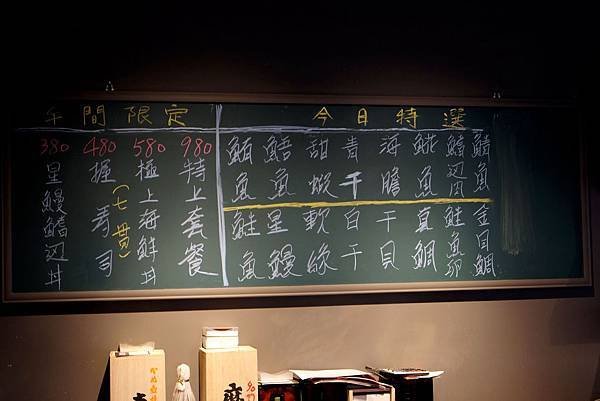 午間限定
980 特上套餐
580 極上海鮮丼
480 握壽司(七貫)
380 星鰻鰭辺丼
今日特選
鯖魚
鰭辺肉
魚
海膽
青干
甜蝦
鯃魚
鮪魚
金目鯛
鮭魚卵
真鯛
干貝
白干
軟絲
星鰻
鮭魚